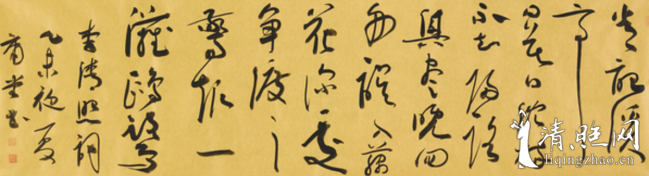 常記溪
亭
日暮沉醉
不知歸路
興盡晚回
舟誤入藕
花深處
爭渡
驚起一
灘鷗鷺
李清照詞
乙未
清旺网
liqingzhao.cn